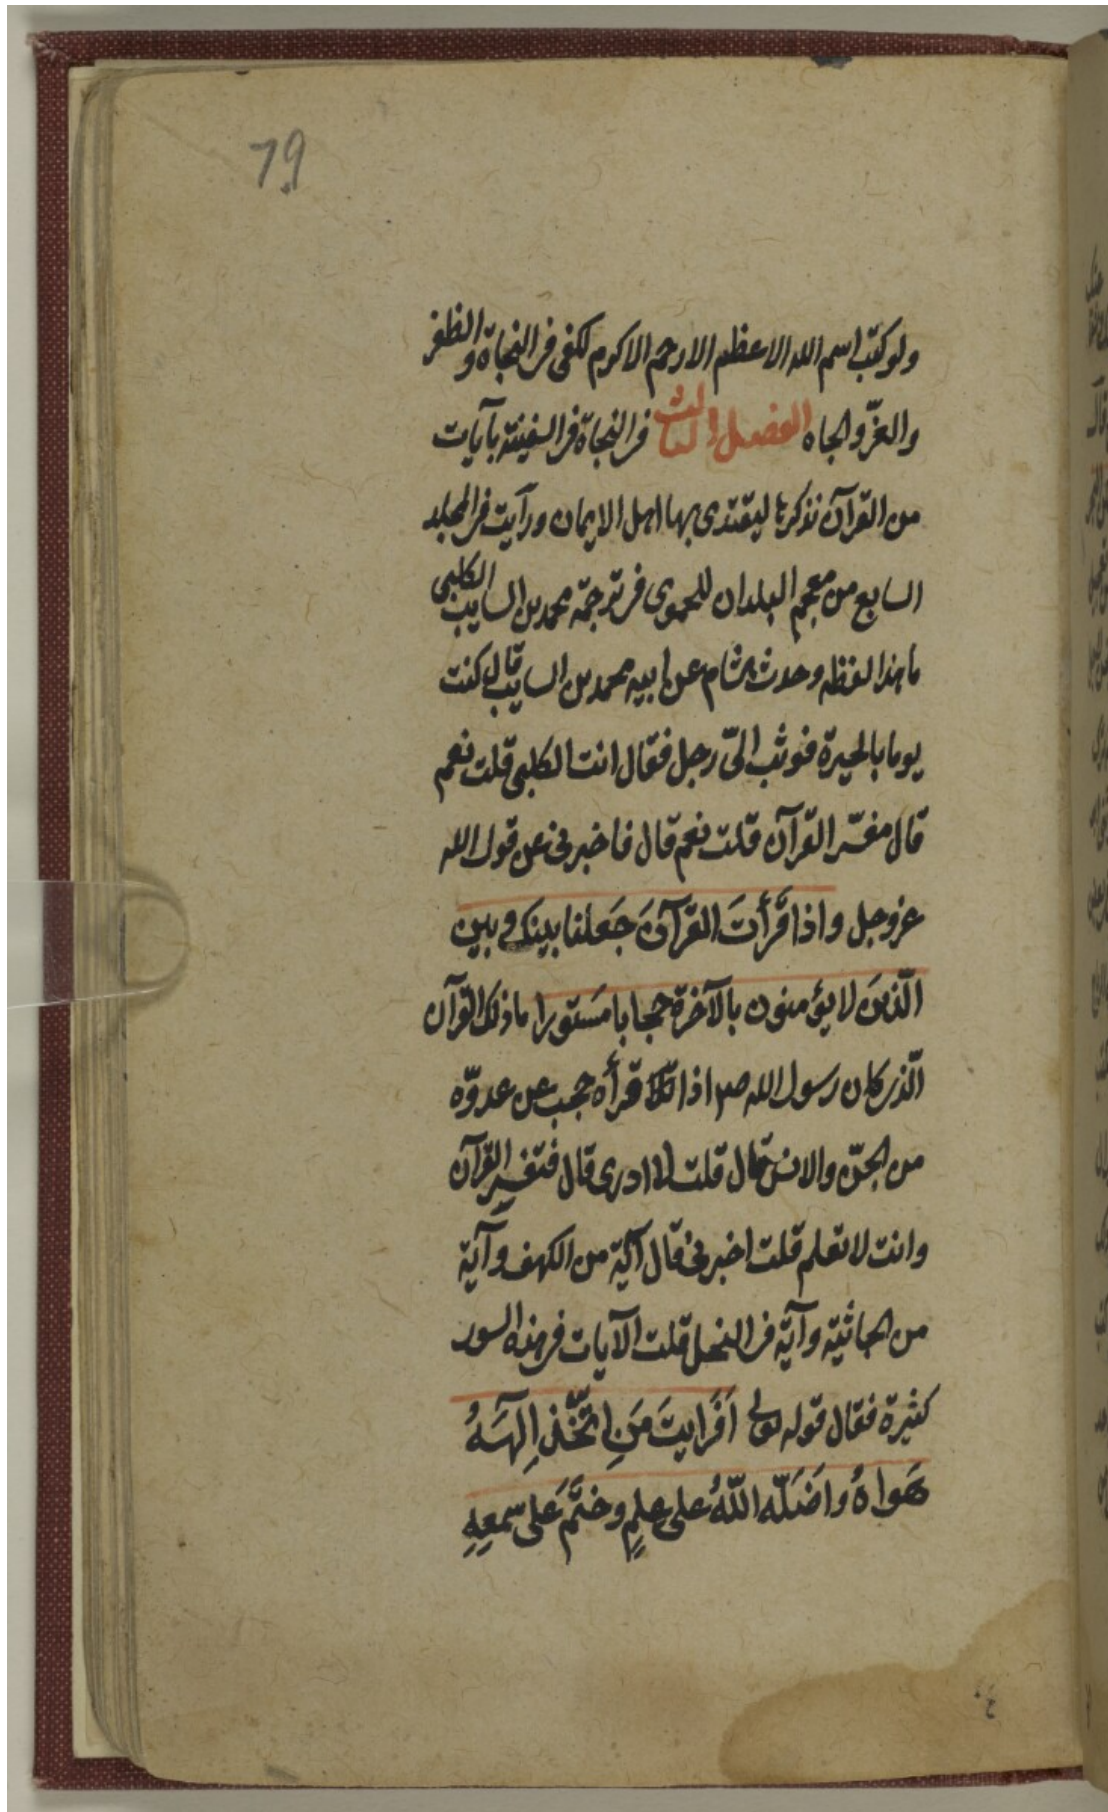 79
ولو كتب اسم الله الاعظم الارحم الاكرم لكفى فى النجاة والظفر
والعزّ والجاه الفصل الثالث فى النجاة فى السفينة بآيات
من القرآن نذكرها ليقتدى بها اهل الايمان ورأيت فى المجلد
السابع من معجم البلدان للحموى فى ترجمة محمد بن السايب الكلبى
ما هذا لفظه وحدث هشام عن ابيه محمد بن السايب قال كنت
يوما بالحيرة فوثب الىّ رجل فقال انت الكلبى قلت نعم
قال مفسّر القرآن قلت نعم قال فاخبرنى عن قول الله
عزوجل واذا قَرَأتَ القرآنَ جَعلنا بينك وبين
الّذينَ لا يؤمنون بالآخرة حجابا مَستورا ما ذلك القرآن
الّذى كان رسول الله ص اذا قرأه حجب عن عدوّه
من الجنّ والانس قال قلت لا ادرى قال فتفسير القرآن
وانت لا تعلم قلت اخبرنى قال آية من الكهف وآية
من الجاثية وآية فى النحل قلت الآيات فى هذه السور
كثيرة فقال قوله تعالى اَفَرايتَ مَنِ اتَّخذ اِلٰهَهُ
هَواهُ واضَلّه اللّهُ على عِلمٍ وختَمَ عَلى سمعِهِ